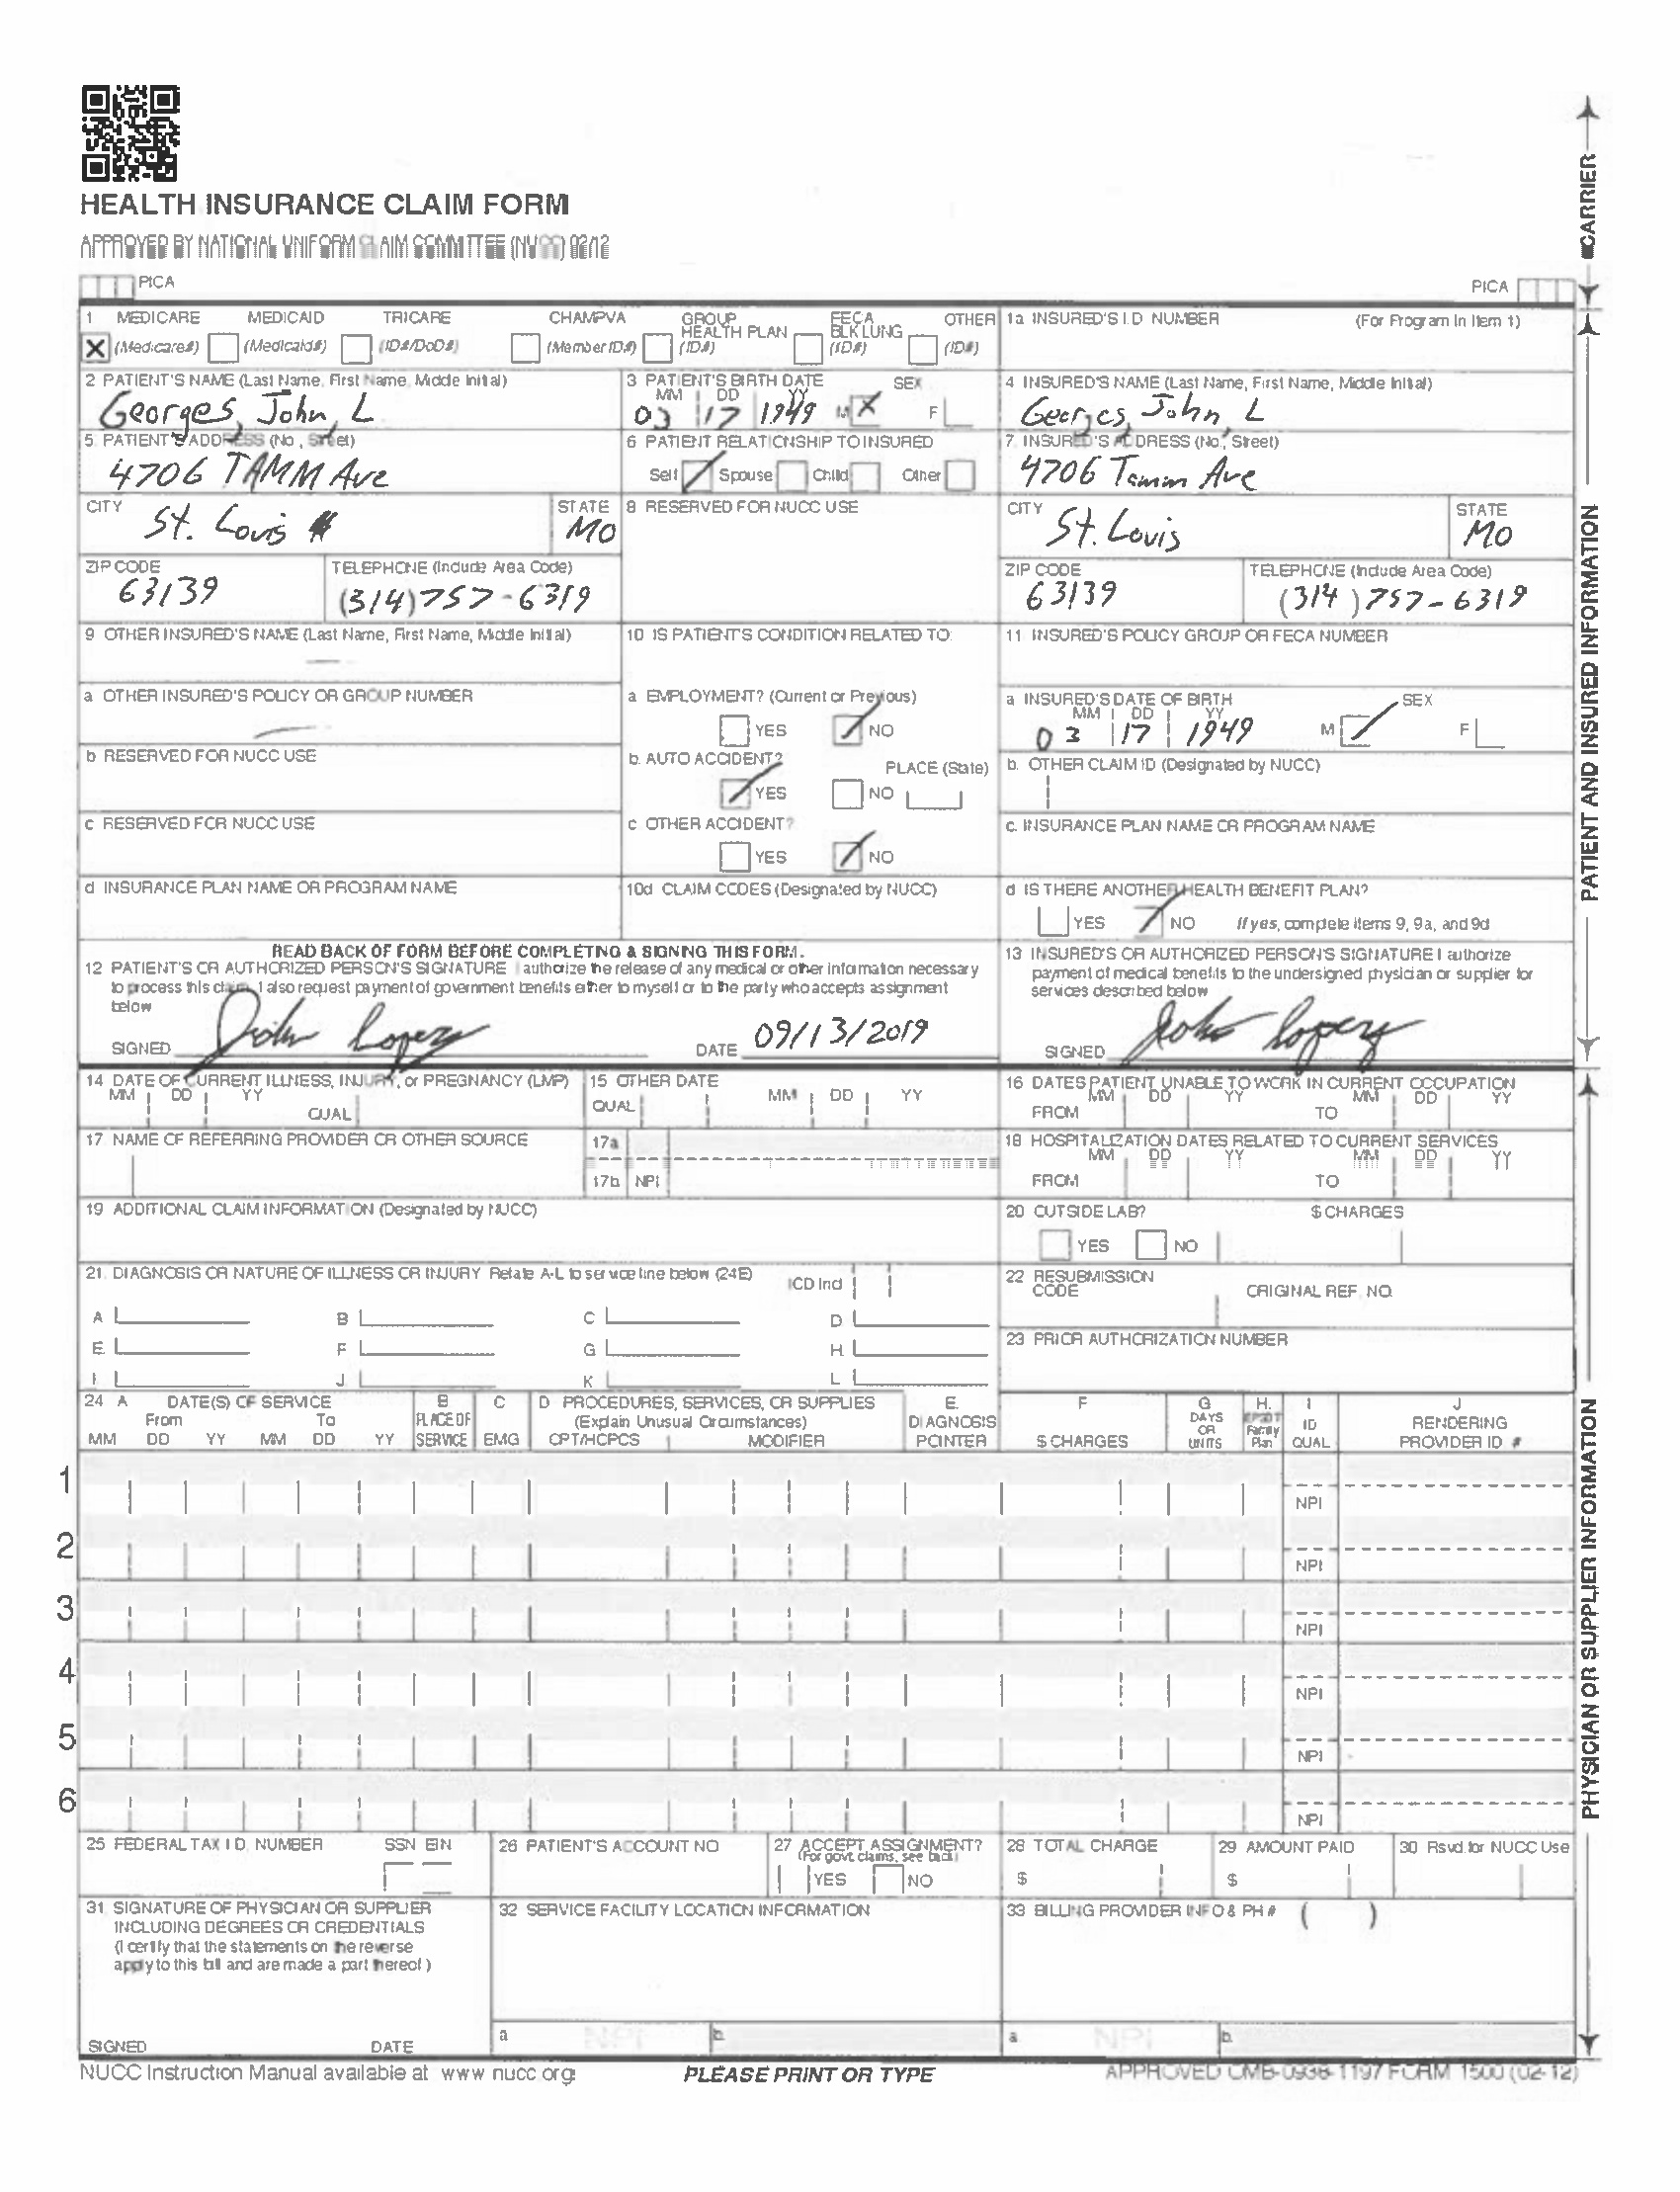 HEALTH INSURANCE CLAIM FORM
APPROVED BY NATIONAL UNIFORM CLAIM COMMITTEE (NUCC) 02/12
CARRIER
PICA PICA
1 MEDICARE MEDICAID TRICARE CHAMPVA GROUP HEALTH PLAN FECA BLK LUNG OTHER
X (Medicare#) (Medicaid#) (ID#/DoD#) (Member ID#) (ID#) (ID#) (ID#)
1a INSURED'S I.D NUMBER (For Program In Item 1)
2 PATIENT'S NAME (Last Name, First Name, Middle Initial)
Georges, John, L
3 PATIENT'S BIRTH DATE SEX
MM DD YY
03 17 1949 M X F
4 INSURED'S NAME (Last Name, First Name, Middle Initial)
Georges, John, L
5. PATIENT'S ADDRESS (No, Street)
4706 TAMM Ave
6 PATIENT RELATIONSHIP TO INSURED
Self Spouse Child Other
7. INSURED'S ADDRESS (No., Street)
4706 Tamm Ave
CITY STATE
St. Louis MO
8 RESERVED FOR NUCC USE
CITY STATE
St. Louis MO
ZIP CODE TELEPHONE (Include Area Code)
63139 (314) 757-6319
ZIP CODE TELEPHONE (Include Area Code)
63139 (314) 757-6319
9 OTHER INSURED'S NAME (Last Name, First Name, Middle Initial)
10 IS PATIENT'S CONDITION RELATED TO
11 INSURED'S POLICY GROUP OR FECA NUMBER
a OTHER INSURED'S POLICY OR GROUP NUMBER
a EMPLOYMENT? (Current or Previous)
YES NO
a INSURED'S DATE OF BIRTH SEX
MM DD YY
03 17 1949 M F
b RESERVED FOR NUCC USE
b. AUTO ACCIDENT? PLACE (State)
YES NO
b. OTHER CLAIM ID (Designated by NUCC)
c RESERVED FOR NUCC USE
c OTHER ACCIDENT?
YES NO
c. INSURANCE PLAN NAME OR PROGRAM NAME
d INSURANCE PLAN NAME OR PROGRAM NAME
10d CLAIM CODES (Designated by NUCC)
d IS THERE ANOTHER HEALTH BENEFIT PLAN?
YES NO If yes, complete items 9, 9a, and 9d
PATIENT AND INSURED INFORMATION
READ BACK OF FORM BEFORE COMPLETING & SIGNING THIS FORM.
12 PATIENT'S OR AUTHORIZED PERSON'S SIGNATURE I authorize the release of any medical or other information necessary
to process this claim. I also request payment of government benefits either to myself or to the party who accepts assignment
below
SIGNED John Lopez DATE 09/13/2019
13 INSURED'S OR AUTHORIZED PERSON'S SIGNATURE I authorize
payment of medical benefits to the undersigned physician or supplier for
services described below
SIGNED John Lopez
14 DATE OF CURRENT ILLNESS, INJURY, or PREGNANCY (LMP)
MM DD YY
QUAL
15 OTHER DATE
QUAL MM DD YY
16 DATES PATIENT UNABLE TO WORK IN CURRENT OCCUPATION
MM DD YY MM DD YY
FROM TO
17 NAME OF REFERRING PROVIDER OR OTHER SOURCE
17a
17b NPI
18 HOSPITALIZATION DATES RELATED TO CURRENT SERVICES
MM DD YY MM DD YY
FROM TO
19 ADDITIONAL CLAIM INFORMATION (Designated by NUCC)
20 OUTSIDE LAB? $ CHARGES
YES NO
21. DIAGNOSIS OR NATURE OF ILLNESS OR INJURY Relate A-L to service line below (24E) ICD Ind
A B C D
E. F G H.
I. J K L
22 RESUBMISSION CODE ORIGINAL REF. NO.
23 PRIOR AUTHORIZATION NUMBER
24 A DATE(S) OF SERVICE B C D PROCEDURES, SERVICES, OR SUPPLIES E. F G H. I J
From To PLACE OF (Explain Unusual Circumstances) DIAGNOSIS DAYS OR UNITS EPSDT Family Plan ID RENDERING
MM DD YY MM DD YY SERVICE EMG CPT/HCPCS MODIFIER POINTER $ CHARGES QUAL PROVIDER ID #
1 NPI
2 NPI
3 NPI
4 NPI
5 NPI
6 NPI
PHYSICIAN OR SUPPLIER INFORMATION
25 FEDERAL TAX I D. NUMBER SSN EIN
26 PATIENT'S ACCOUNT NO
27 ACCEPT ASSIGNMENT?
(For govt. claims, see back)
YES NO
28 TOTAL CHARGE
$
29 AMOUNT PAID
$
30 Rsvd. for NUCC Use
31 SIGNATURE OF PHYSICIAN OR SUPPLIER
INCLUDING DEGREES OR CREDENTIALS
(I certify that the statements on the reverse
apply to this bill and are made a part thereof)
SIGNED DATE
32 SERVICE FACILITY LOCATION INFORMATION
a NPI b.
33 BILLING PROVIDER INFO & PH # ( )
a NPI b.
NUCC Instruction Manual available at www nucc.org
PLEASE PRINT OR TYPE
APPROVED OMB-0938-1197 FORM 1500 (02-12)